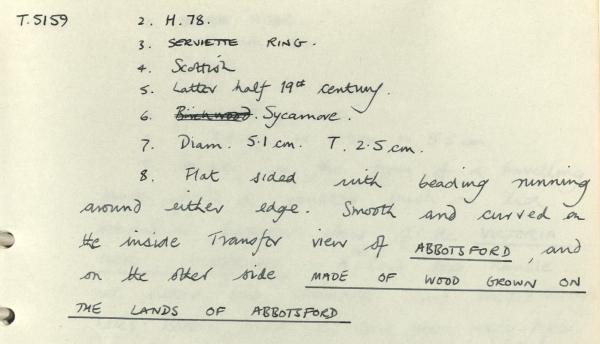 T.5159 2. H.78.
3. SERVIETTE RING.
4. Scottish
5. Latter half 19th century.
6. Birchwood. Sycamore.
7. Diam. 5.1 cm. T. 2.5 cm.
8. Flat sided with beading running
around either edge. Smooth and curved on
the inside Transfer view of ABBOTSFORD, and
on the other side MADE OF WOOD GROWN ON
THE LANDS OF ABBOTSFORD